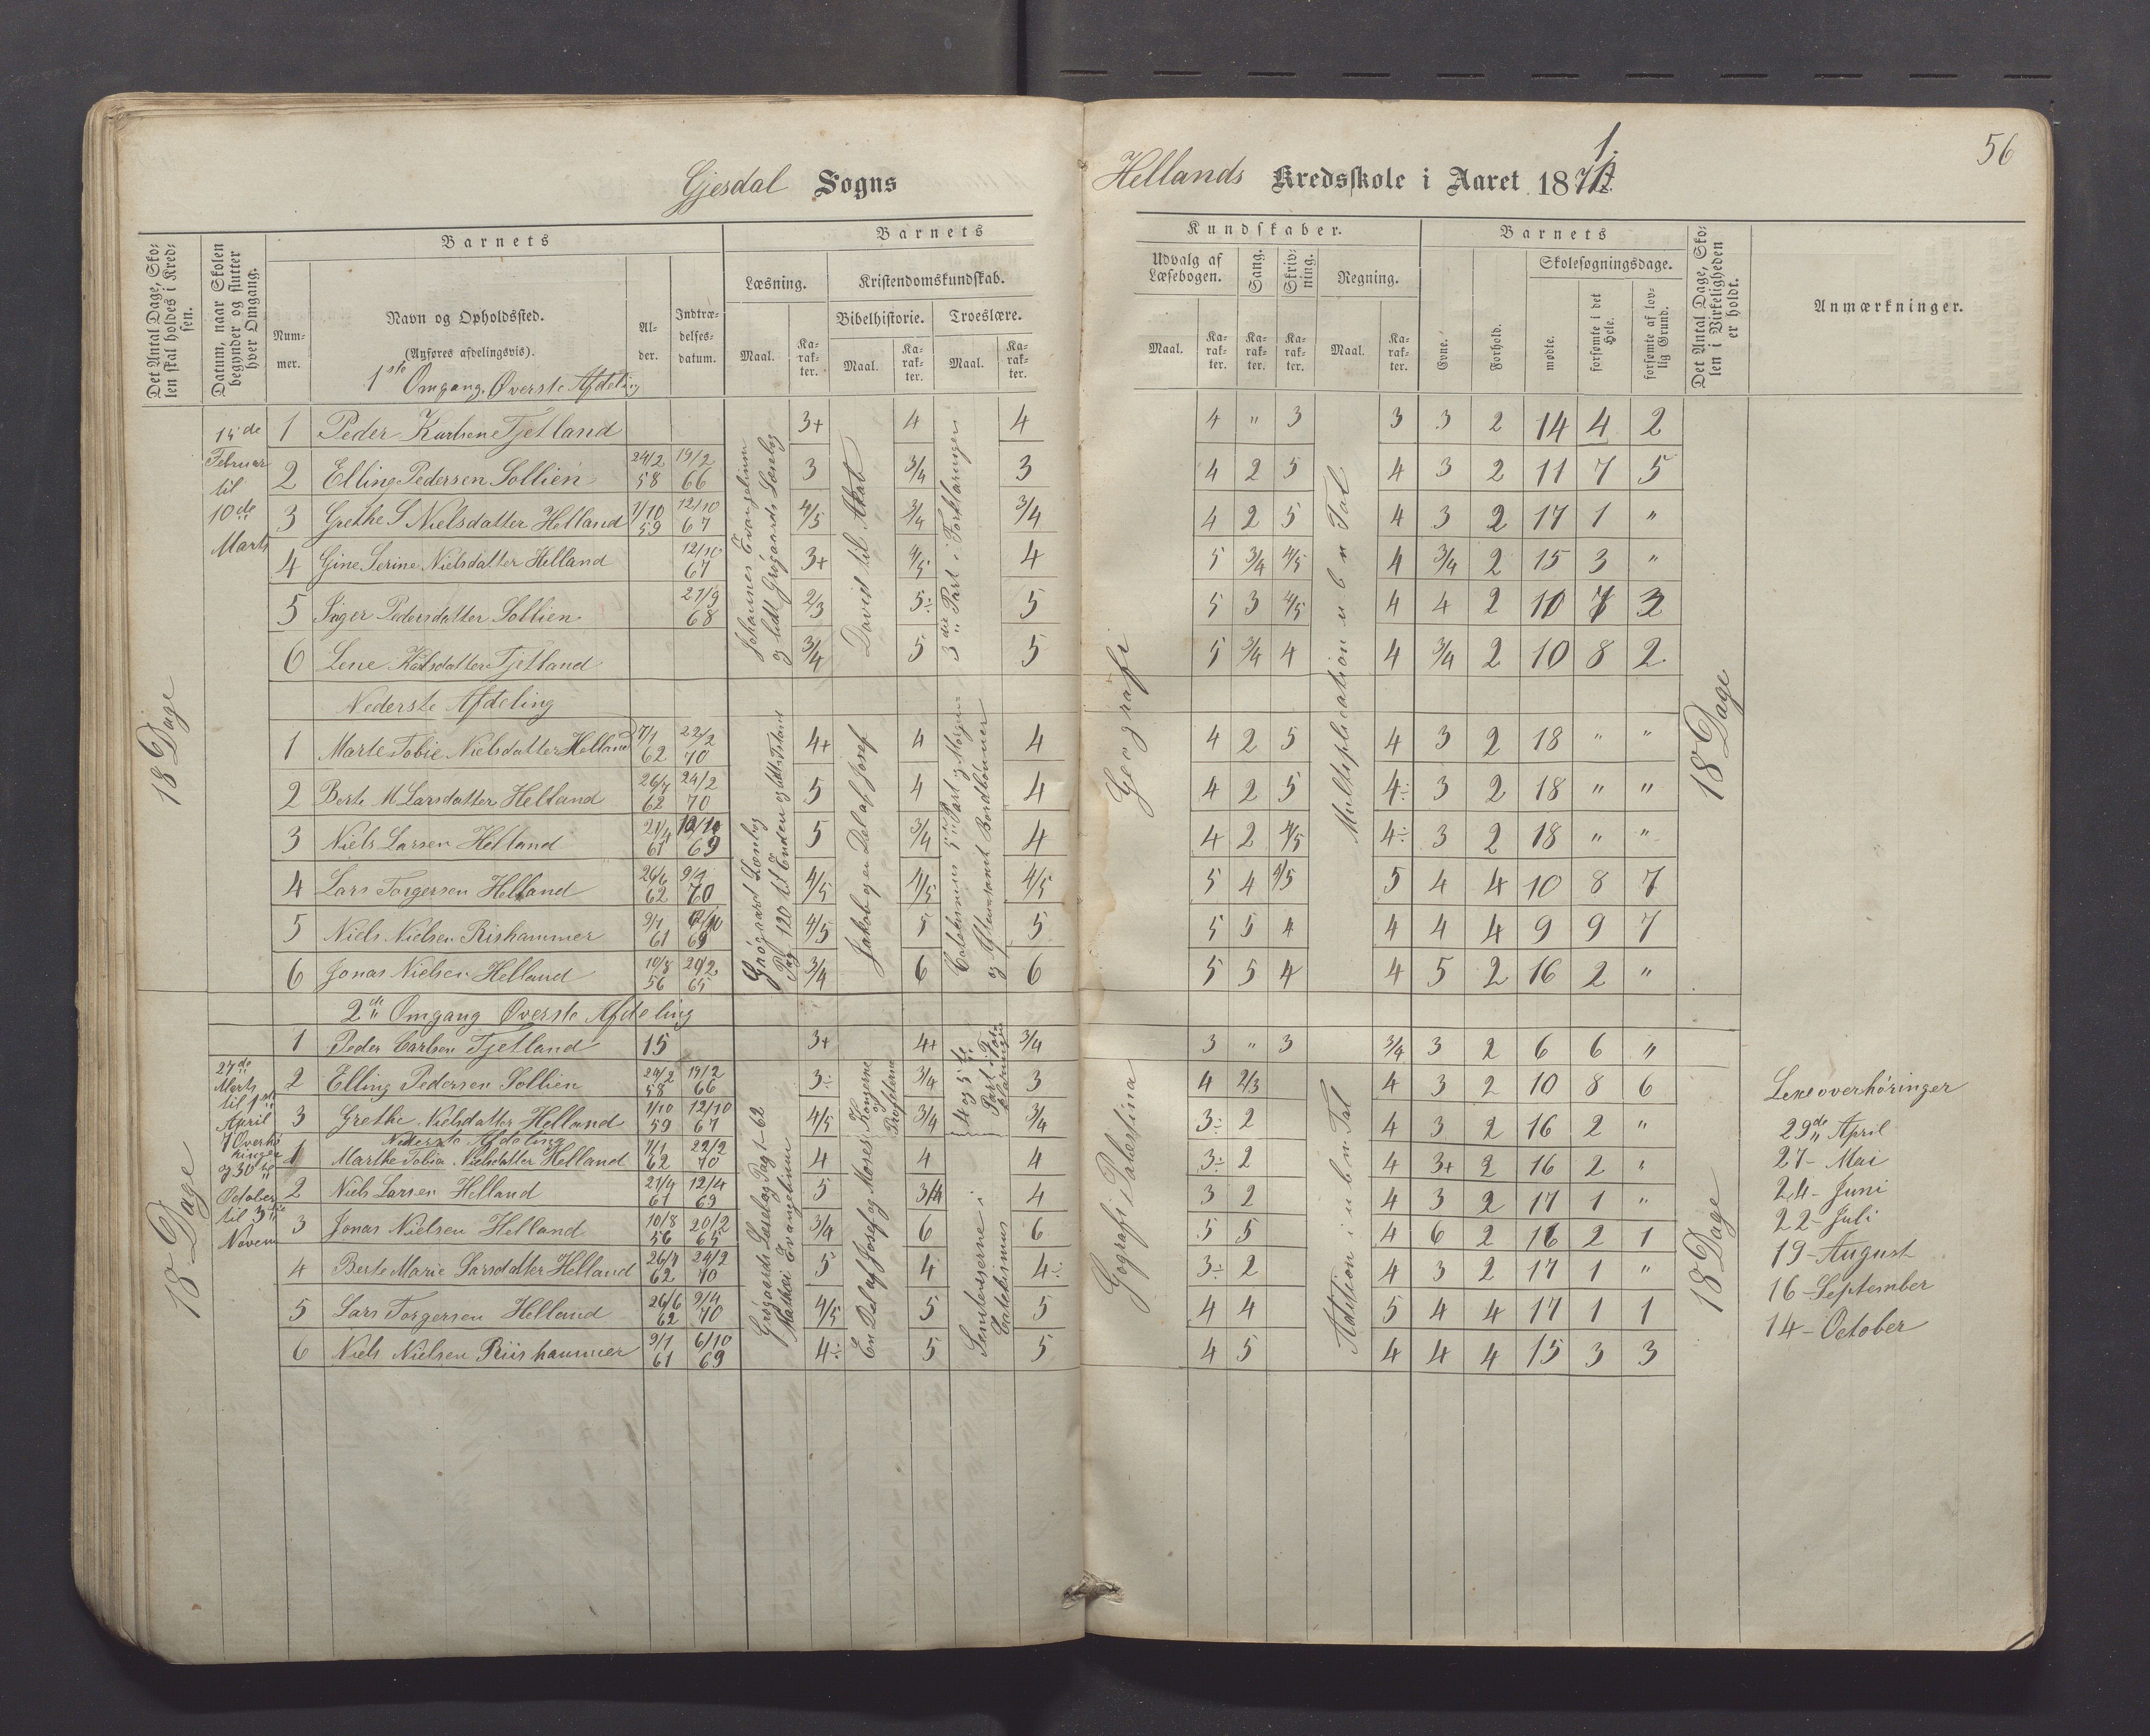 56
Gjesdal Sogns
Hellands Kredsskole i Aaret 1871.
Det Antal Dage, Skolen skal holdes i Kredsen.
Datum, naar Skolen begynder og slutter hver Omgang.
Barnets
Nummer.
Navn og Opholdssted.
(Anføres afdelingsvis).
Alder.
Indtrædelsesdatum.
Barnets
Læsning.
Kristendomskundskab.
Bibelhistorie.
Troeslære.
Maal.
Karakter.
Maal.
Karakter.
Maal.
Karakter.
Kundskaber.
Udvalg af Læsebogen.
Sang.
Skrivning.
Regning.
Maal.
Karakter.
Karakter.
Karakter.
Maal.
Karakter.
Barnets
Evne.
Forhold.
Skolesøgningsdage.
mødte.
forsømte i det Hele.
forsømte af lovlig Grund.
Det Antal Dage, Skolen i Virkeligheden er holdt.
Anmærkninger.
1ste Omgang. Øverste Afdeling
18 Dage
15de Februar til 10de Marts
Johannes Evangelium og lidt Grøgaards Læsebog
David til Akab
3die Part i Forklaringen
Geografi
Multiplication u b n Tal
18 Dage
1 Peder Karlsen Tjetland 3+ 4 4 4 " 3 3 3 2 14 4 2
2 Elling Pedersen Sollien 24/2 58 19/2 66 3 3/4 3 4 2 5 4 3 2 11 7 5
3 Grethe S Nielsdatter Helland 1/10 59 12/10 67 4/5 3/4 3/4 4 2 5 4 3 2 17 1 "
4 Gine Serine Nielsdatter Helland 12/10 67 3+ 4/5 4 5 3/4 4/5 4 3/4 2 15 3 "
5 Inger Pedersdatter Sollien 27/9 68 2/3 5÷ 5 5 3 4/5 4 4 2 10 7 3
6 Lene Karlsdatter Tjetland 3/4 5 5 5 3/4 4 4 3/4 2 10 8 2
Nederste Afdeling
Grøgaard Læsebog Pag 120 til Enden
Jakob og en Del af Josef
og Aftensamt Bordbønner
1 Marte Tobie Nielsdatter Helland 7/1 62 22/2 70 4+ 4 4 4 2 5 4 3 2 18 " "
2 Berte M Larsdatter Helland 26/7 62 24/2 70 5 4 4 4 2 5 4÷ 3 2 18 " "
3 Niels Larsen Helland 21/4 61 69 5 3/4 4 4 2 4/5 4÷ 3 2 18 " "
4 Lars Torgersen Helland 26/6 62 9/4 70 4/5 4/5 4/5 5 4 4/5 5 4 4 10 8 7
5 Niels Nielsen Rishammer 9/1 61 69 4/5 5 5 5 5 4 4 4 4 9 9 7
6 Jonas Nielsen Helland 10/8 56 20/2 65 3/4 6 6 5 5 4 4 5 2 16 2 "
2den Omgang Øverste Afdeling
18 Dage
27de Marts til 1ste April 7 Overhøringer og 30te October til 3die Novem
Grøgaards Læsebog Pag 1-62 Mathæi Evangelium
Kongerne og Profeterne
4 og 5te Part i Forklaringen
Geografi Palæstina
Adition i u b n Tal
18 Dage
1 Peder Carlsen Tjetland 15 3+ 4+ 3/4 3 " 3 3/4 3 2 6 6 "
2 Elling Pedersen Sollien 24/2 58 19/2 66 3÷ 3/4 3 4 2/3 4 3 2 10 8 6
3 Grethe Nielsdatter Helland 1/10 59 12/10 67 4/5 3/4 3/4 3÷ 2 4 3 2 16 2 "
Nederste Afdeling
En Del af Josef og Moses
Sentenserne i Catekismus
1 Marthe Tobia Nielsdatter Helland 7/1 62 22/2 70 4 4 4 3÷ 2 4 3+ 2 16 2 "
2 Niels Larsen Helland 21/4 61 12/4 69 5 3/4 4 3 2 4 3 2 17 1 "
3 Jonas Nielsen Helland 10/8 56 20/2 65 3/4 6 6 5 5 4 6 2 16 2 1
4 Berte Marie Larsdatter Helland 26/7 62 24/2 70 5 4 4÷ 3÷ 2 4 3 2 17 1 "
5 Lars Torgersen Helland 26/6 62 9/4 70 4/5 5 5 4 4 5 4 4 17 1 1
6 Niels Nielsen Riishammer 9/1 61 6/10 69 4÷ 5 5 4 5 4 4 4 15 3 3
Lexeoverhøringer
29de April
27 - Mai
24 - Juni
22 - Juli
19 - August
16 - September
14 - October